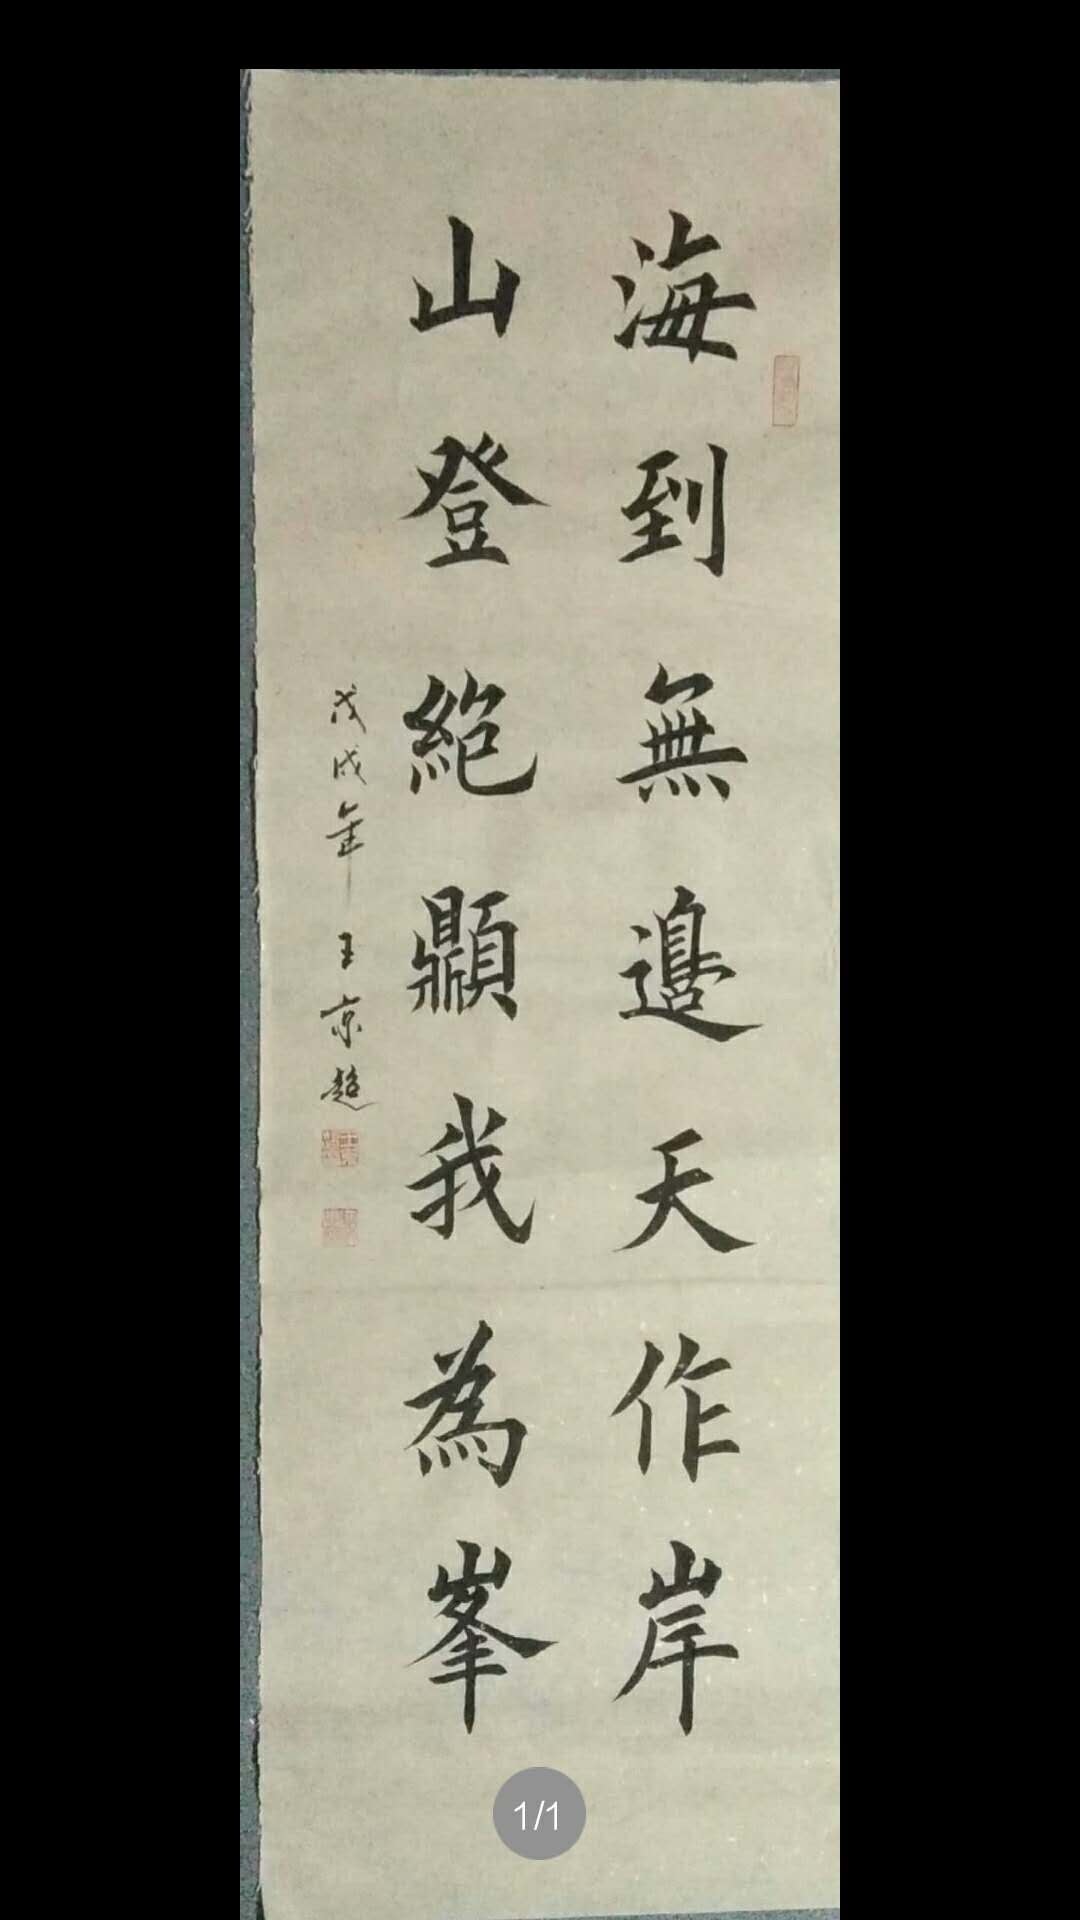 海到無邊天作岸
山登絕顥我為峯
戊戌年 王京超
1/1